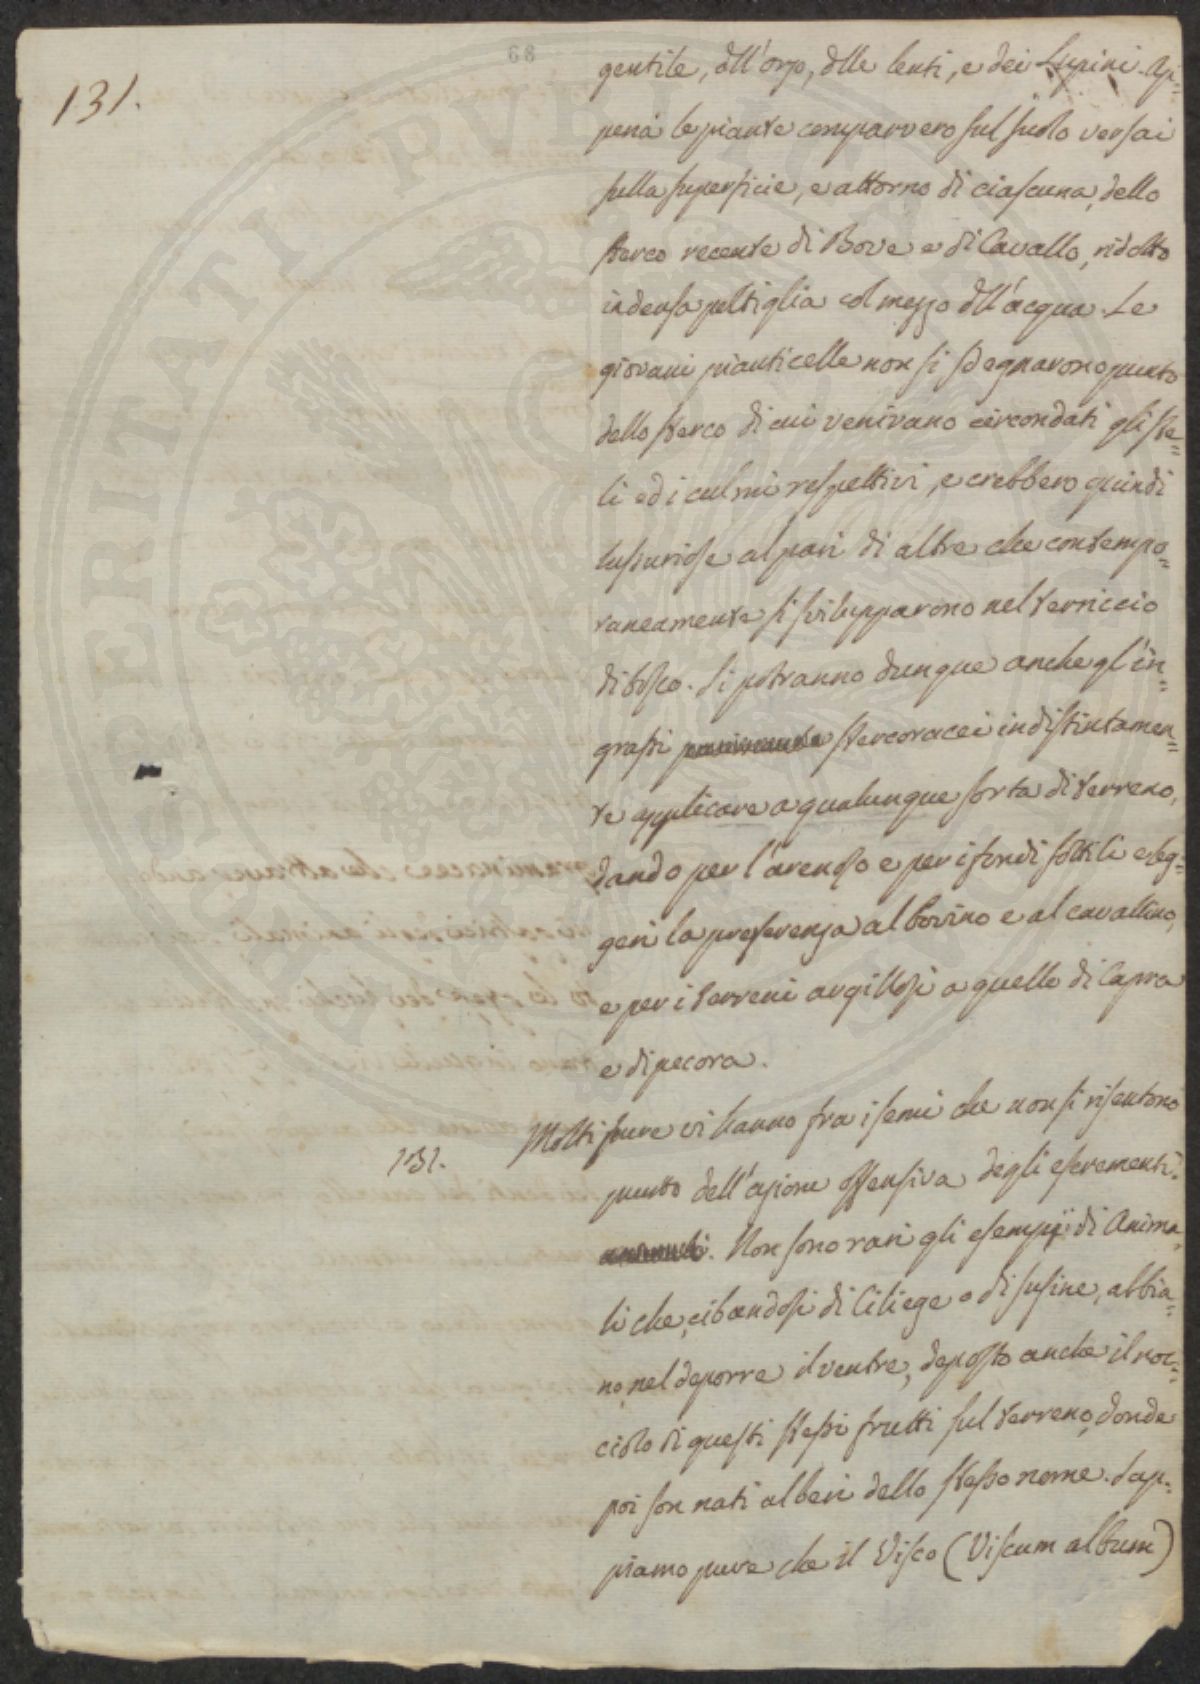 68
131.
gentile, dell'orzo, delle lenti, e dei Lupini. Ap=
pena le piante comparvero sul suolo versai
sulla superficie, e attorno di ciascuna, dello
sterco recente di Bove e di Cavallo, ridotto
in densa poltiglia col mezzo dell'acqua. Le
giovani pianticelle non si sdegnarono punto
dello sterco di cui venivano circondati gli ste=
li ed i culmi respettivi, e crebbero quindi
lussuriose al pari di altre che contempo=
raneamente si svilupparono nel terriccio
di bosco. Si potranno dunque anche gl'in=
grassi stercoracei indistintamen=
te applicare a qualunque sorta di terreno,
dando per l'arenoso e per i fondi sottili e leg=
geri la preferenza al bovino e al cavallino,
e per i terreni argillosi a quello di Capra
e di pecora.
131. Molti pure vi hanno fra i semi che non si risentono
punto dell'azione offensiva degli escrementi.
Non sono rari gli esempj di Anima=
li che, cibandosi di Ciliege o di susine, abbia=
no, nel deporre il ventre, deposto anche il noc=
ciolo di questi stessi frutti sul terreno, donde
poi son nati alberi dello stesso nome. Sap=
piamo pure che il Visco (Viscum album)
PROSPERITATI PVBLICAE